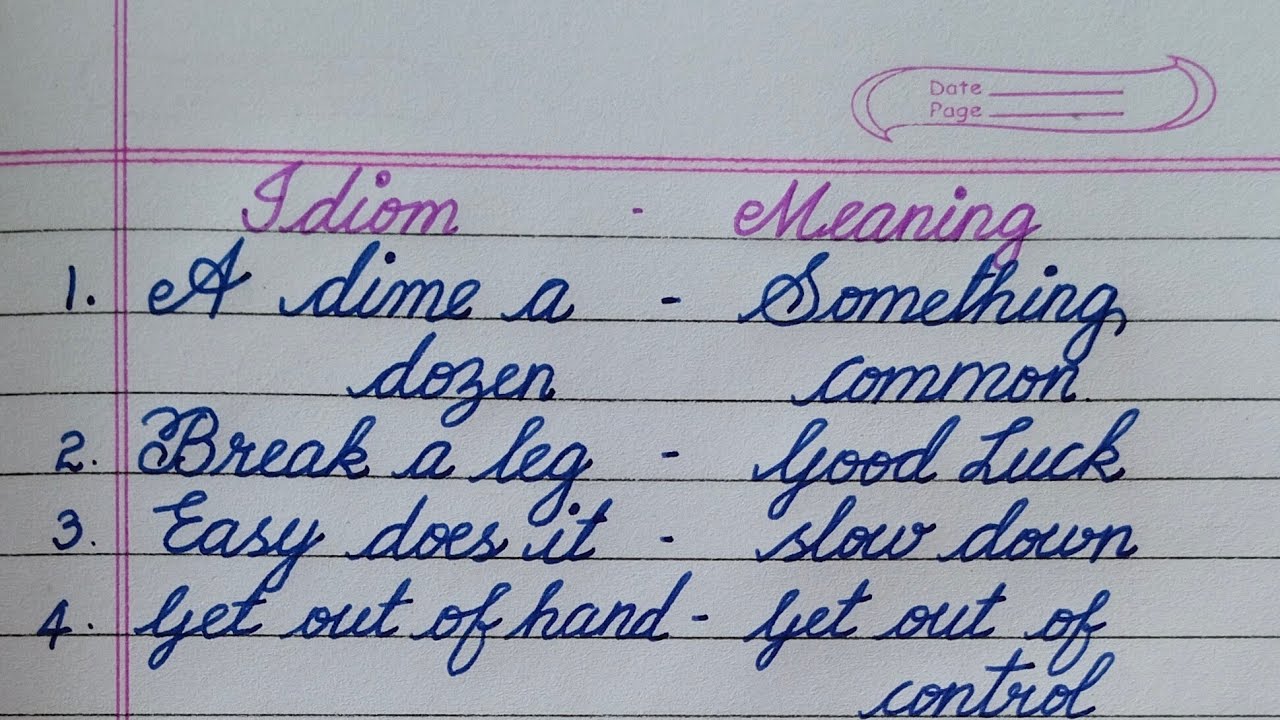 Date
Page
Idiom - Meaning
1. A dime a - Something
dozen common
2. Break a leg - Good Luck
3. Easy does it - slow down
4. Get out of hand - Get out of
control